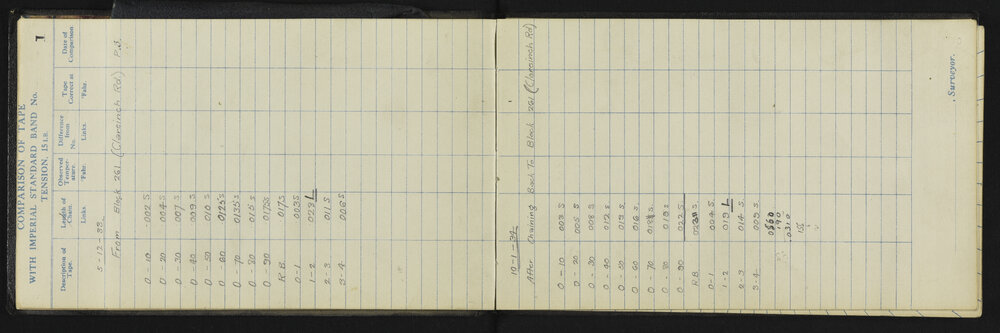 COMPARISON OF TAPE
1
WITH IMPERIAL STANDARD BAND No.
TENSION, 15 LB.
Description of Tape. Length of Chain. Links. Observed Temperature. °Fahr. Difference from No. Links. Tape Correct at °Fahr. Date of Comparison
5-12-33
From Block 261 (Claroinch Rd) P.S.
0 - 10 .002 S
0 - 20 004 S
0 - 30 007 S
0 - 40 009 S
0 - 50 010 S
0 - 60 0125 S
0 - 70 0135 S
0 - 80 015 S
0 - 90 0175 S
R.B. 017 S
0 - 1 003 S
1 - 2 028 L
2 - 3 011 S
3 - 4 006 S
10-1-34
After Chaining Back To Block 261 (Claroinch Rd)
0 - 10 003 S
0 - 20 005 S
0 - 30 008 S
0 - 40 012 S
0 - 50 013 S
0 - 60 016 S
0 - 70
0 - 80 018 S
0 - 90 022 S
R.B.
0 - 1 004 S
1 - 2 019 L
2 - 3 014 S
3 - 4 009 S
190
0310
Surveyor.